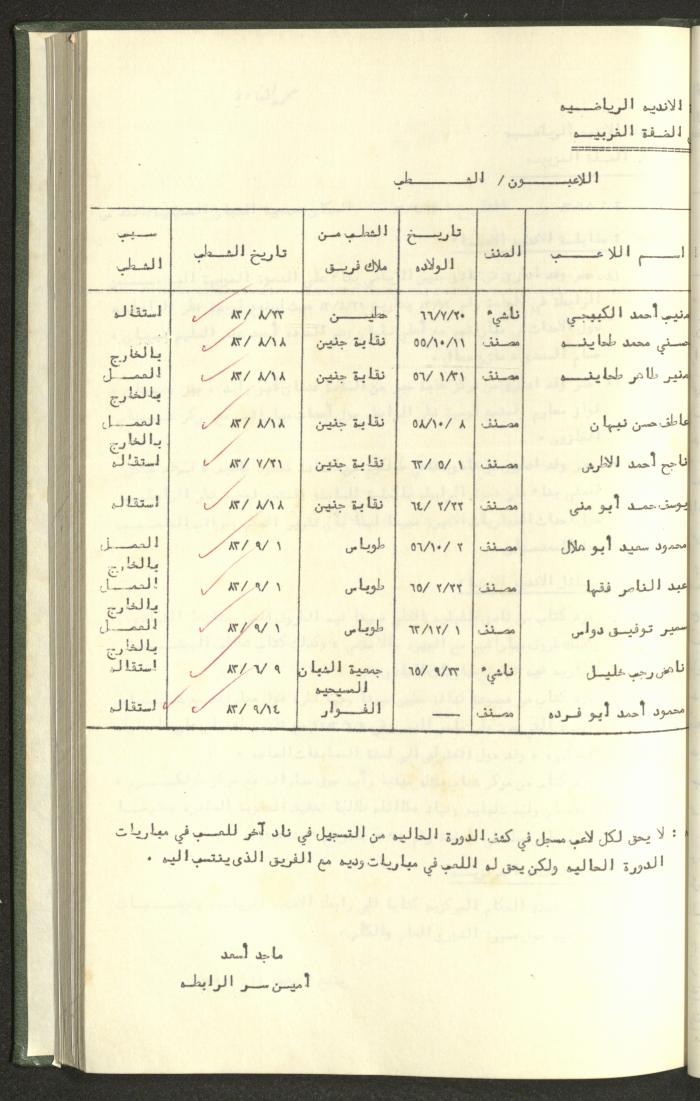 الانديه الرياضيه
الضفة الغربيه
اللاعبون / الشطب
اسم اللاعب الصنف تاريخ الولاده الشطب من ملاك فريق تاريخ الشطب سبب الشطب
منيب أحمد الكيبجي ناشيء ٦٦/٧/٢٠ حطين ٨٣/٨/٢٣ استقاله
حسني محمد طحاينه مصنف ٥٥/١٠/١١ نقابة جنين ٨٣/٨/١٨ بالخارج
منير طاهر طحاينه مصنف ٥٦/١/٣١ نقابة جنين ٨٣/٨/١٨ العمل بالخارج
عاطف حسن نبهان مصنف ٥٨/١٠/٨ نقابة جنين ٨٣/٨/١٨ العمل بالخارج
ناجح أحمد الاطرش مصنف ٦٣/٥/١ نقابة جنين ٨٣/٧/٢١ استقاله
يوسف حمد أبو منى مصنف ٦٤/٢/٢٢ نقابة جنين ٨٣/٨/١٨ استقاله
محمود سعيد أبو هلال مصنف ٥٦/١٠/٢ طوباس ٨٣/٩/١ العمل بالخارج
عبد الناصر فقها مصنف ٦٥/٢/٢٢ طوباس ٨٣/٩/١ العمل بالخارج
سمير توفيق دواس مصنف ٦٣/١٢/١ طوباس ٨٣/٩/١ العمل بالخارج
ناهض رجب خليل ناشيء ٦٥/٩/٢٣ جمعية الشبان المسيحيه ٨٣/٦/٩ استقاله
محمود أحمد أبو فرده مصنف — الفوار ٨٣/٩/١٤ استقاله
: لا يحق لكل لاعب مسجل في كشف الدورة الحاليه من التسجيل في ناد آخر للعب في مباريات
الدورة الحاليه ولكن يحق له اللعب في مباريات وديه مع الفريق الذي ينتسب اليه .
ماجد أسعد
أمين سر الرابطه